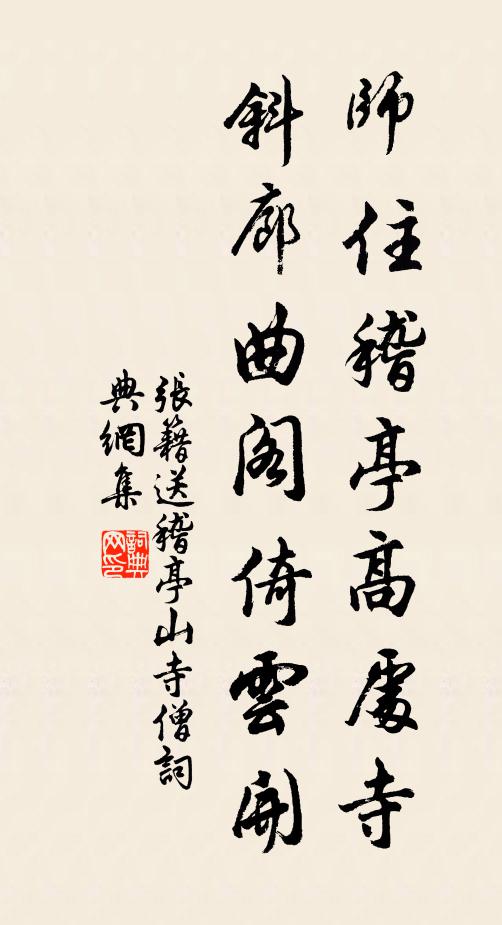 師住稽亭高處寺
斜廊曲閣倚雲開
張籍送稽亭山寺僧詞
典網集
詞典网印